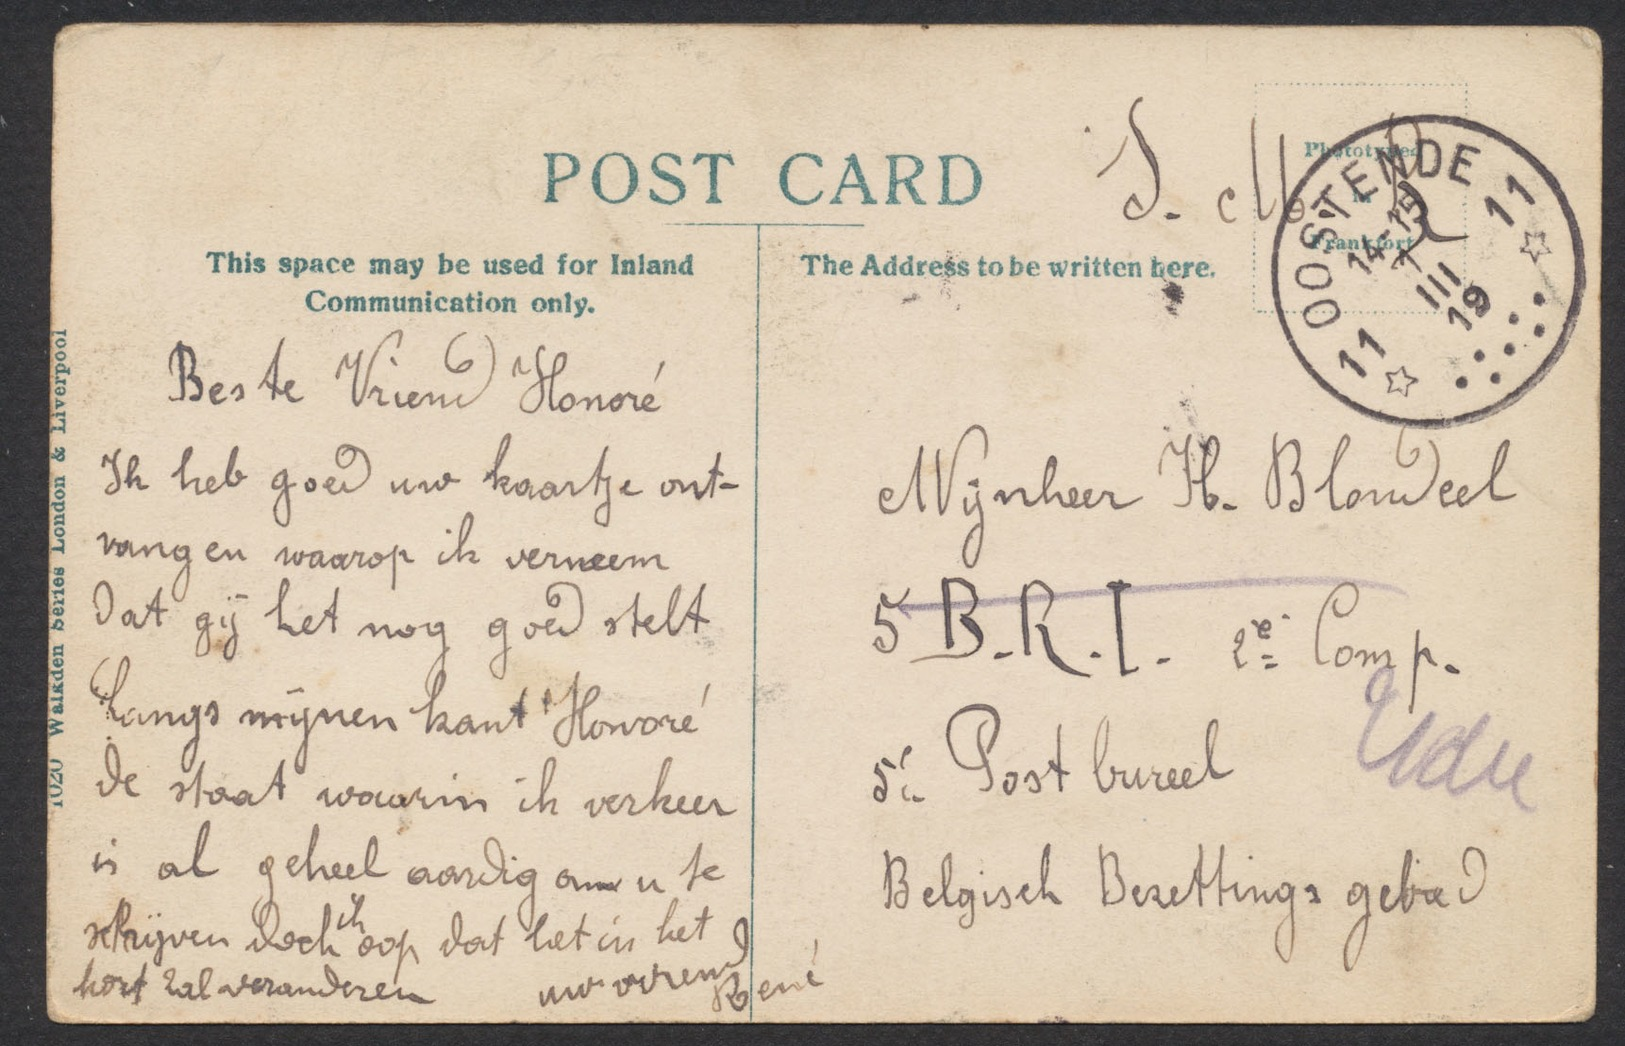 POST CARD
This space may be used for Inland
Communication only.
The Address to be written here.
Phototyped
Frankfort
S. M.
OOSTENDE
14-15
7
III
19
11
11
1020 Walkden Series London & Liverpool
Beste Vriend Honoré
Ik heb goed uw kaartje ont-
vangen waarop ik verneem
dat gij het nog goed stelt
Langs mijnen kant Honoré
de staat waarin ik verkeer
is al geheel aardig om u te
schrijven doch ik oop dat het in het
kort zal veranderen uw vriend
René
Mijnheer H. Blondeel
5 B.R.I. 2e Comp.
5e Post bureel
Belgisch Bezettings gebied